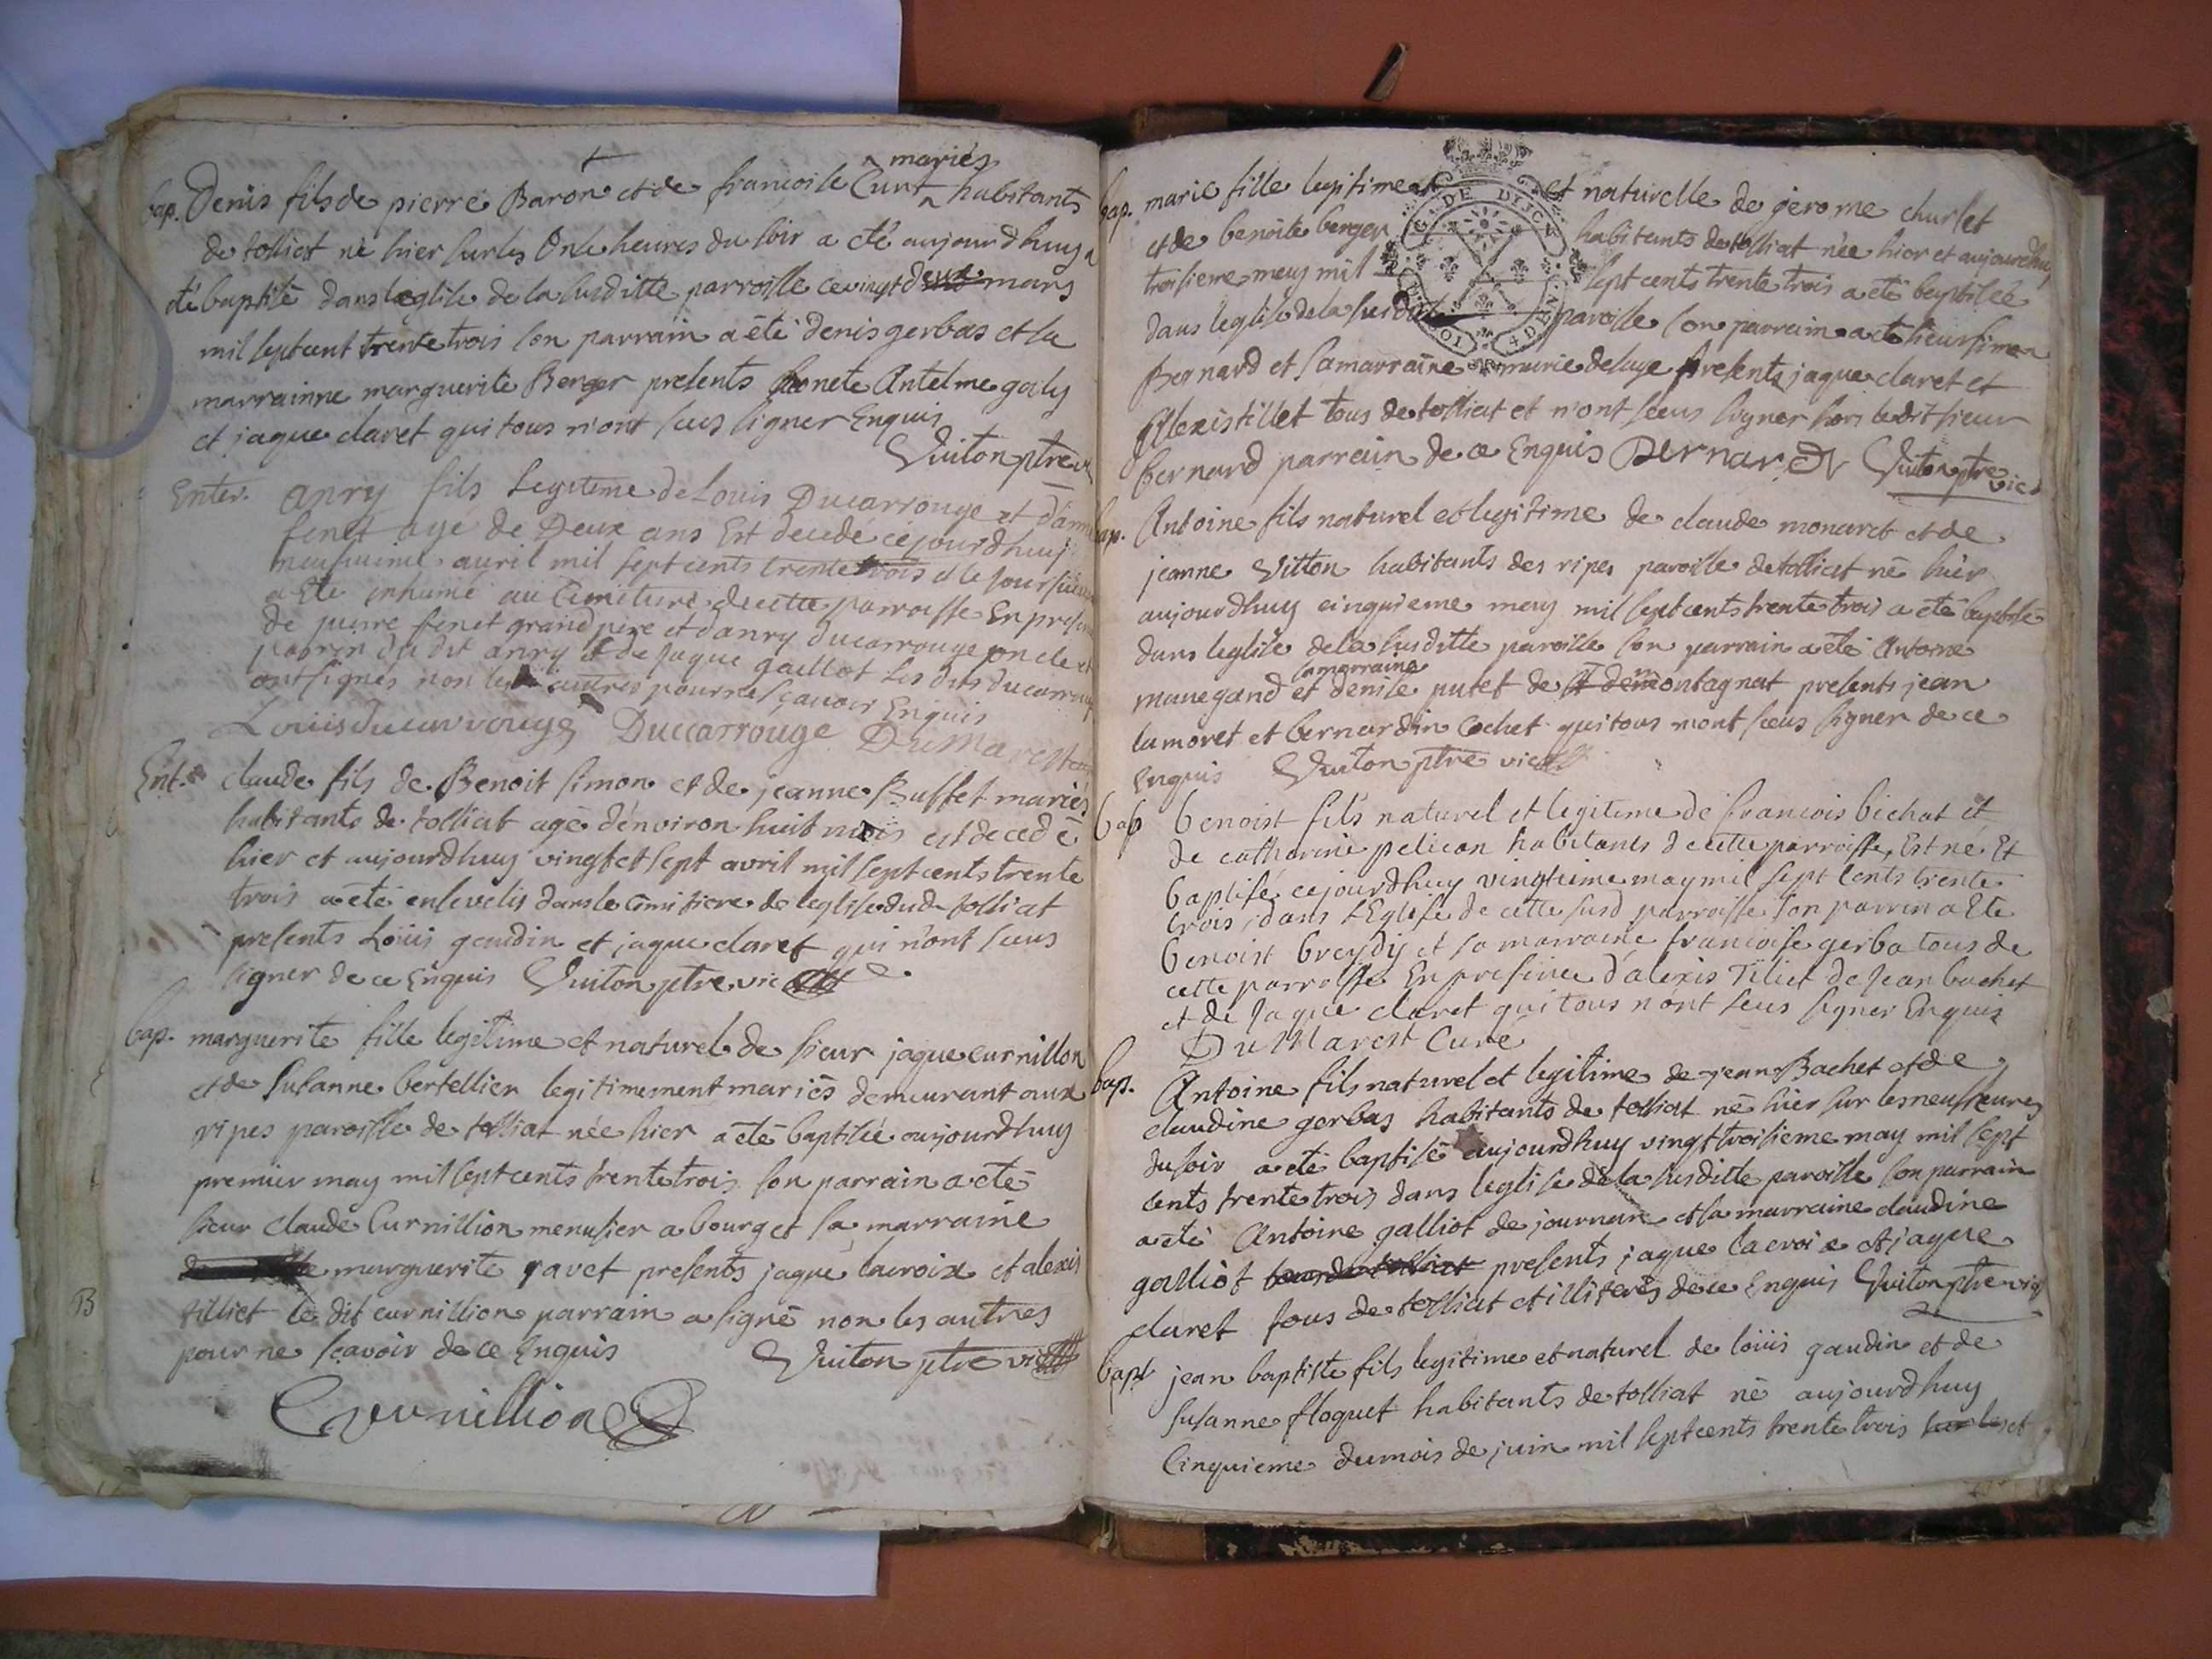 mariés
bap. Denis fils de pierre Baron et de francoise Curt habitants
de tolliat né hier sur les Onze heures du soir a eté aujourdhuy a
eté baptisé dans leglise de la susditte parroisse ce vingt deux mars
mil sept cent trente trois son parrain a été denis gerbas et la
marrainne marguerite Berger presents honete Antelme galy
et jaque claret qui tous n'ont sceus signer Enquis
Vuiton ptre
Enter. anry fils Legitime de Louis Ducarrouge et
fenet age de Deux ans Est decedé cejourdhuy
neufvieme avril mil sept cents trente trois et le jour
a Ete inhumé au Cimitiere de cette parroisse En
de pierre fenet grand pere et d'anry ducarrouge oncle et
parrin du dit anry et de jaque gaillot Les dits
ont signes non les autres pour ne sçavoir Enquis
Louis ducarrouge Duccarrouge DuMarest
Ent. claude fils de Benoit simon et de jeanne Buffet mariés
habitants de tolliat agé d'environ huit mois est decedé
hier et aujourdhuy vingt et sept avril mil sept cents trente
trois a été ensevelis dans le Cimitiere de leglise dud tolliat
presents Loüis gaudin et jaque claret qui n'ont sceus
signer de ce Enquis Vuiton ptre vic
bap. marguerite fille legitime et naturel de sieur jaque curnillon
et de susanne bertellier legitimement mariés demeurant aux
ripes paroisse de tolliat née hier a été baptisée aujourdhuy
premier may mil sept cents trente trois son parrain a eté
sieur claude Curnillion menusier a bourg et sa marraine
marguerite ravet presents jaque lacroix et alexis
tilliet le dit curnillion parrain a signé non les autres
pour ne sçavoir de ce Enquis Vuiton ptre vic
Curnillion
B
bap. marie fille legitime et naturelle de jerome churlet
et de benoite berger habitants de tolliat née hier et aujourdhuy
troisieme mey mil sept cents trente trois a eté baptisée
dans leglise de la susdit paroisse son parrain a eté sieur simon
Bernard et sa marraine marie deluye presents jaque claret et
Allexis tillet tous de tolliat et n'ont sceus signer hors ledit sieur
bernard parrain de ce Enquis Bernard Vuiton ptre vic
bap. Antoine fils naturel et legitime de claude monaret et de
jeanne Vitton habitants des ripes paroisse de tolliat né hier
aujourdhuy cinquieme mey mil sept cents trente trois a eté baptisé
dans leglise de la susditte paroisse son parrain a eté Antoine
sa marraine
manegand et denise putet de montagnat presents jean
lamoret et bernardin Cochet qui tous n'ont sceus signer de ce
Enquis Vuiton ptre vic
bap benoist fils naturel et legitime de francois bichat et
de catharine pelican habitants de cette parroisse, Est né Et
baptisé cejourdhuy vingtieme may mil sept Cents trente
trois, dans L'Eglise de cette susd parroisse son parrin a Ete
benoist breydy et sa marraine francoise gerba tous de
cette parroisse En presence d'alexis Tiliet de Jean bachet
et de Jaque claret qui tous n'ont sceus signer Enquis
DuMarest Curé
bap. Antoine fils naturel et legitime de jean Bachet et de
claudine gerbas habitants de tolliat né hier sur les neuf heures
du soir a eté baptisé aujourdhuy vingt troisieme may mil sept
cents trente trois dans leglise de la susditte paroisse son parrain
a eté Antoine galliot de journan et sa marraine claudine
galliot presents jaque lacroix et jaque
claret tous de tolliat et illiterés de ce Enquis Vuiton ptre vic
bapt jean baptiste fils legitime et naturel de loüis gaudin et de
susanne floquet habitants de tolliat né aujourdhuy
Cinquieme du mois de juin mil sept cents trente trois sur les et